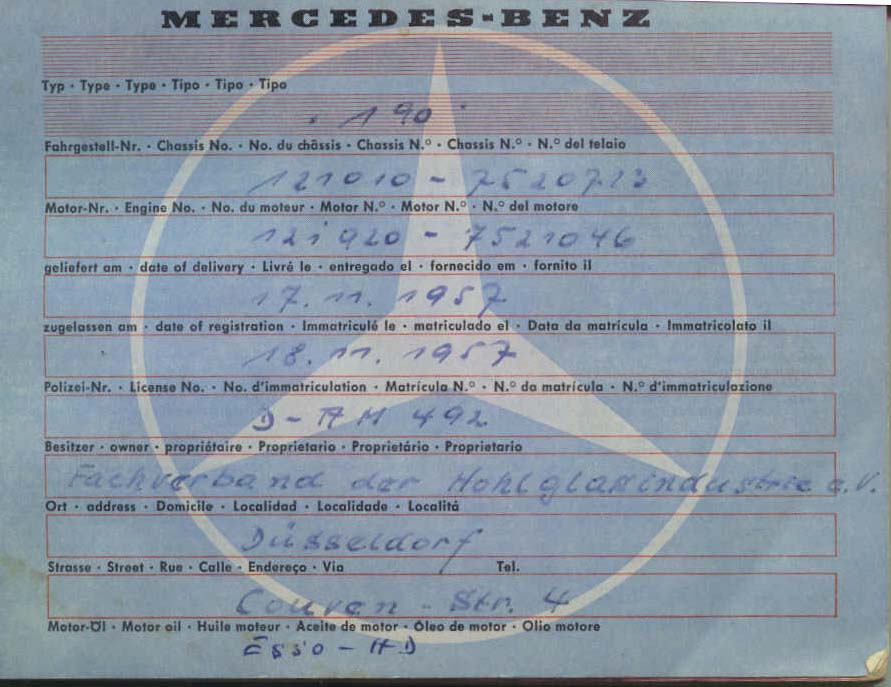 MERCEDES-BENZ
Typ · Type · Type · Tipo · Tipo · Tipo
· 190 ·
Fahrgestell-Nr. · Chassis No. · No. du châssis · Chassis N.º · Chassis N.º · N.º del telaio
121010 - 7520713
Motor-Nr. · Engine No. · No. du moteur · Motor N.º · Motor N.º · N.º del motore
121920 - 7521046
geliefert am · date of delivery · Livré le · entregado el · fornecido em · fornito il
17. 11. 1957
zugelassen am · date of registration · Immatriculé le · matriculado el · Data da matrícula · Immatricolato il
18. 11. 1957
Polizei-Nr. · License No. · No. d'immatriculation · Matrícula N.º · N.º da matrícula · N.º d'immatricolazione
D - AM 492
Besitzer · owner · propriétaire · Proprietario · Proprietário · Proprietario
Fachverband der Hohlglasindustrie e.V.
Ort · address · Domicile · Localidad · Localidade · Località
Düsseldorf
Strasse · Street · Rue · Calle · Endereço · Via Tel.
Couven - Str. 4
Motor-Öl · Motor oil · Huile moteur · Aceite de motor · Óleo de motor · Olio motore
Esso - HD